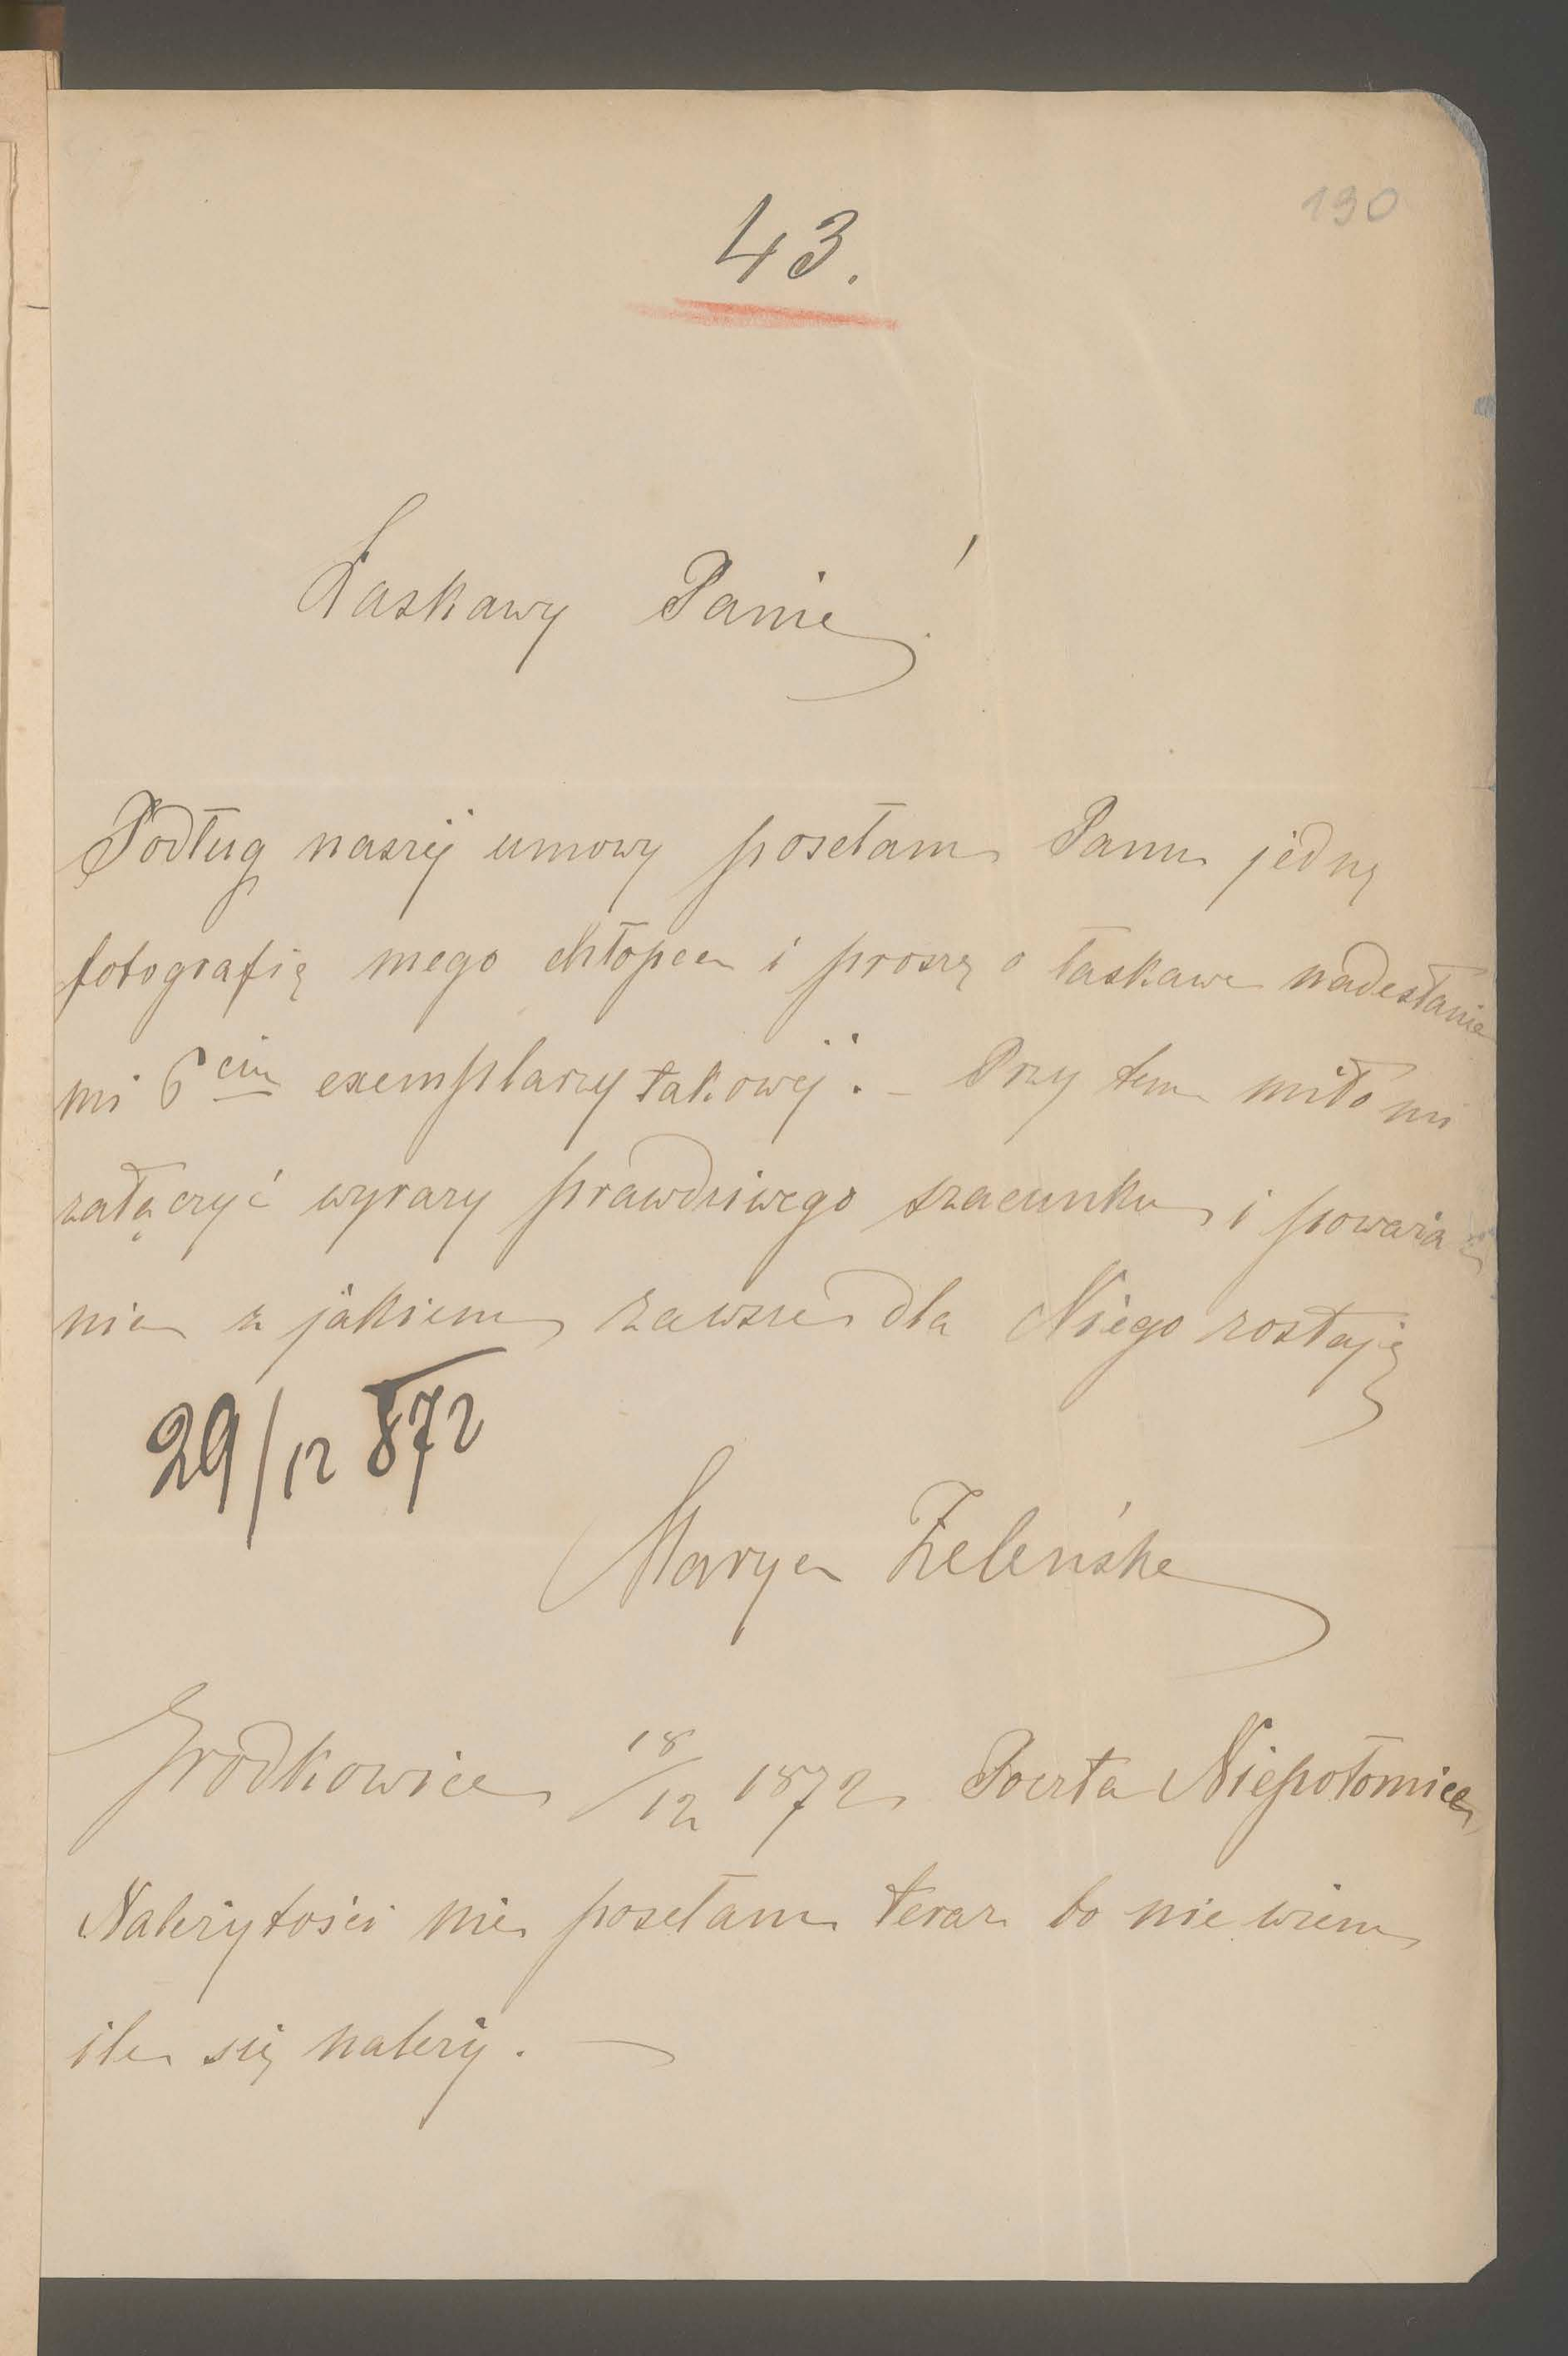 190
43.
Łaskawy Panie!
Podług naszej umowy posełam Panu jednę
fotografię mego chłopca i proszę o łaskawe nadesłanie
mi 6ciu exemplarzy takowej. – Przy tem miło mi
załączyć wyrazy prawdziwego szacunku i poważa
nia z jakiem zawsze dla Niego zostaję
29/12 872
Marya Żeleńska
Grodkowice 18/12 1872 Poczta Niepołomice
Należytości nie posełam teraz bo nie wiem
ile się należy. —